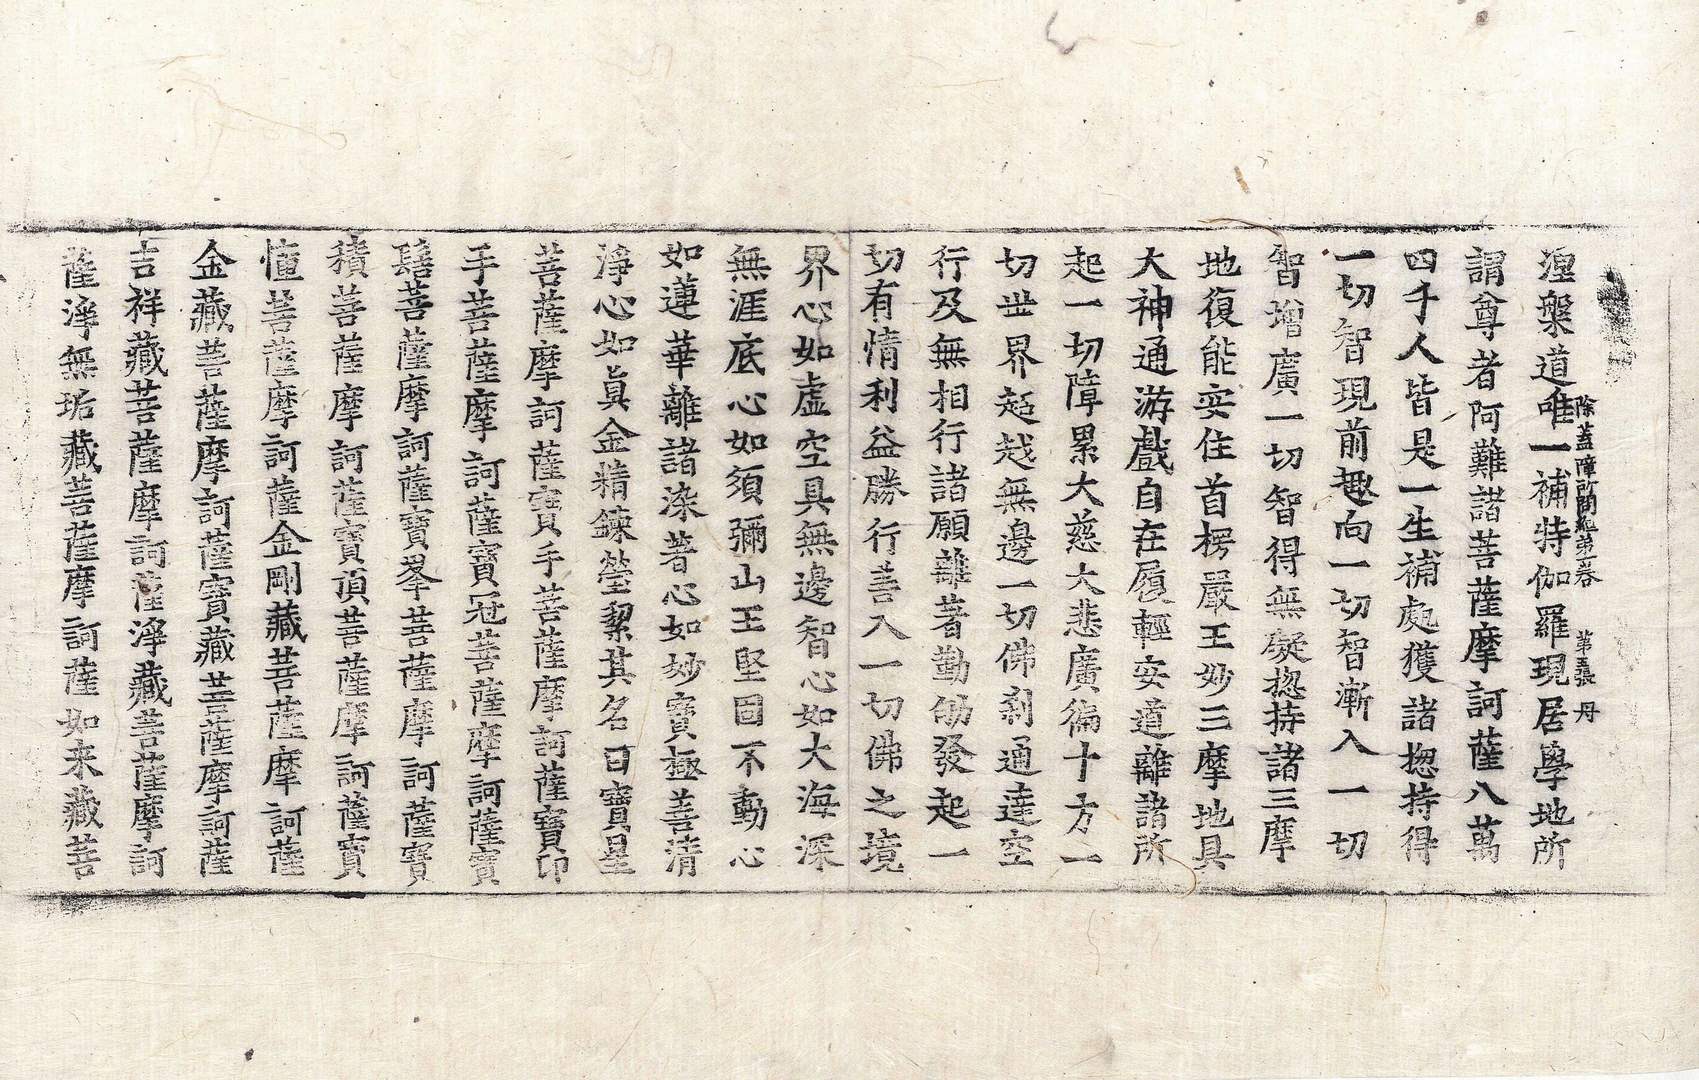 除蓋障所問經第一卷　第五張　丹
涅槃道唯一補特伽羅現居學地所
謂尊者阿難諸菩薩摩訶薩八萬
四千人皆是一生補處獲諸揔持得
一切智現前趣向一切智漸入一切
智增廣一切智得無礙揔持諸三摩
地復能安住首楞嚴王妙三摩地具
大神通游戲自在履輕安道離諸所
起一切障累大慈大悲廣徧十方一
切世界超越無邊一切佛剎通達空
行及無相行諸願離著勤劬發起一
切有情利益勝行善入一切佛之境
界心如虛空具無邊智心如大海深
無涯底心如須彌山王堅固不動心
如蓮華離諸染著心如妙寶極善清
淨心如眞金精鍊瑩絜其名曰寶星
菩薩摩訶薩寶手菩薩摩訶薩寶印
手菩薩摩訶薩寶冠菩薩摩訶薩寶
髻菩薩摩訶薩寶峯菩薩摩訶薩寶
積菩薩摩訶薩寶頂菩薩摩訶薩寶
幢菩薩摩訶薩金剛藏菩薩摩訶薩
金藏菩薩摩訶薩寶藏菩薩摩訶薩
吉祥藏菩薩摩訶薩淨藏菩薩摩訶
薩淨無垢藏菩薩摩訶薩如来藏菩